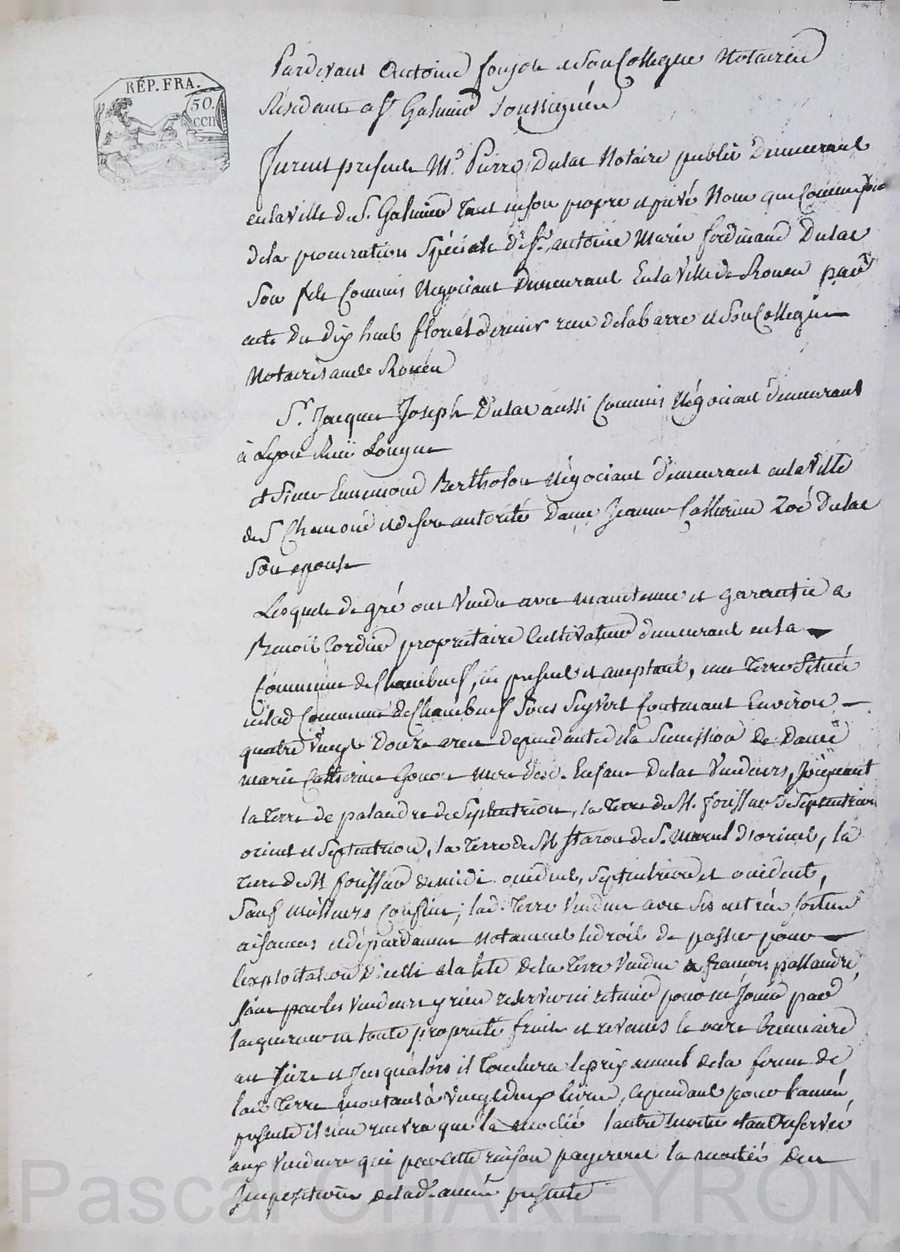 RÉP. FRA.
50.
cen
Pardevant Antoine foujols et son Collegue Notaires
Résidants a St. Galmier Soussignés
Furent présents Mr. Pierre Dulac Notaire public Demeurant
en la ville de St. Galmier tant en son propre et privé Nom que Comme
de la procuration Spéciale de Sr. antoine Marie ferdinand Dulac
Son fils Commis Négociant Demeurant En la ville de Rouen par
acte du dix huit floréal dernier reçu delabarre et Son Collegue
Notaires audit Rouen
Sr. Jacques Joseph Dulac aussi Commis Négociant demeurant
à Lyon Ruë Longue
et Sieur Ennemond Bertholon Négociant demeurant en la Ville
de St Chamond et de son autorité Dame Jeanne Catherine Zoé Dulac
Son epouse
Lesquels de gré ont Vendu avec maintenue et garantie a
Benoit Cordier propriétaire Cultivateur demeurant en la
Commune de Chambœuf, ici présent et acceptant, une terre Située
en lad Commune de Chambœuf Sous Seyvert Contenant Environ
quatre Vingt Douze ares dependante de la Succession de Dame
marie Catherine Gonon mere desd. Enfans Dulac Vendeurs, joignant
la terre de palandre de Septentrion, la terre de M. foissac de Septentrion
orient et Septentrion, la terre de M Staron de St. Marcel d'orient, la
terre de M foissac de midi occident, Septentrion et occident,
Sauf meilleurs Confins; lad. terre Vendue avec Ses entrées Sorties
aisances et dépendances Notament le droit de passer pour
l'exploitation d'icelle a la tête de la terre Vendue a francois pallandre
Sans par les Vendeurs y rien reserver ni retenir pour en Jouir par
lacquereur en toute propriété fruits et revenus le onze brumaire
an treize et Jusqu'alors il Touchera le prix annuel de la ferme de
lad. terre montant à Vingt deux livres, cependant pour lannée
présente il n'en recevra que la moitié l'autre moitié etant reservée
aux Vendeurs qui par cette raison payeront la moitié des
Impositions de lad. année présente
Pascal CHAREYRON